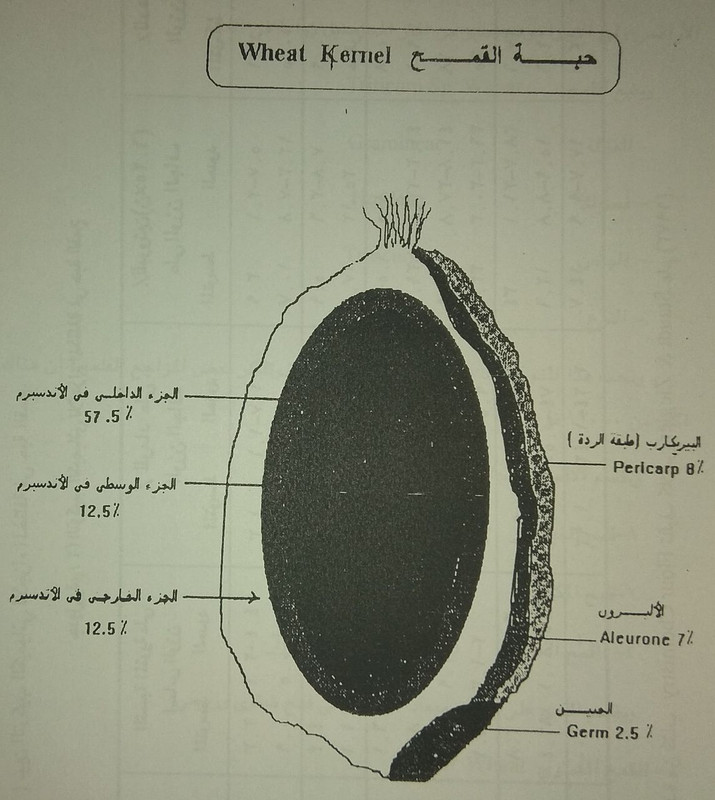 Wheat Kernel حبة القمح
الجزء الداخلى فى الأندسبرم
57.5٪
الجزء الوسطى فى الأندسبرم
12.5٪
الجزء الخارجى فى الأندسبرم
12.5٪
البيريكارب (طبقة الردة)
Pericarp 8٪
الأليرون
Aleurone 7٪
الجنين
Germ 2.5 ٪